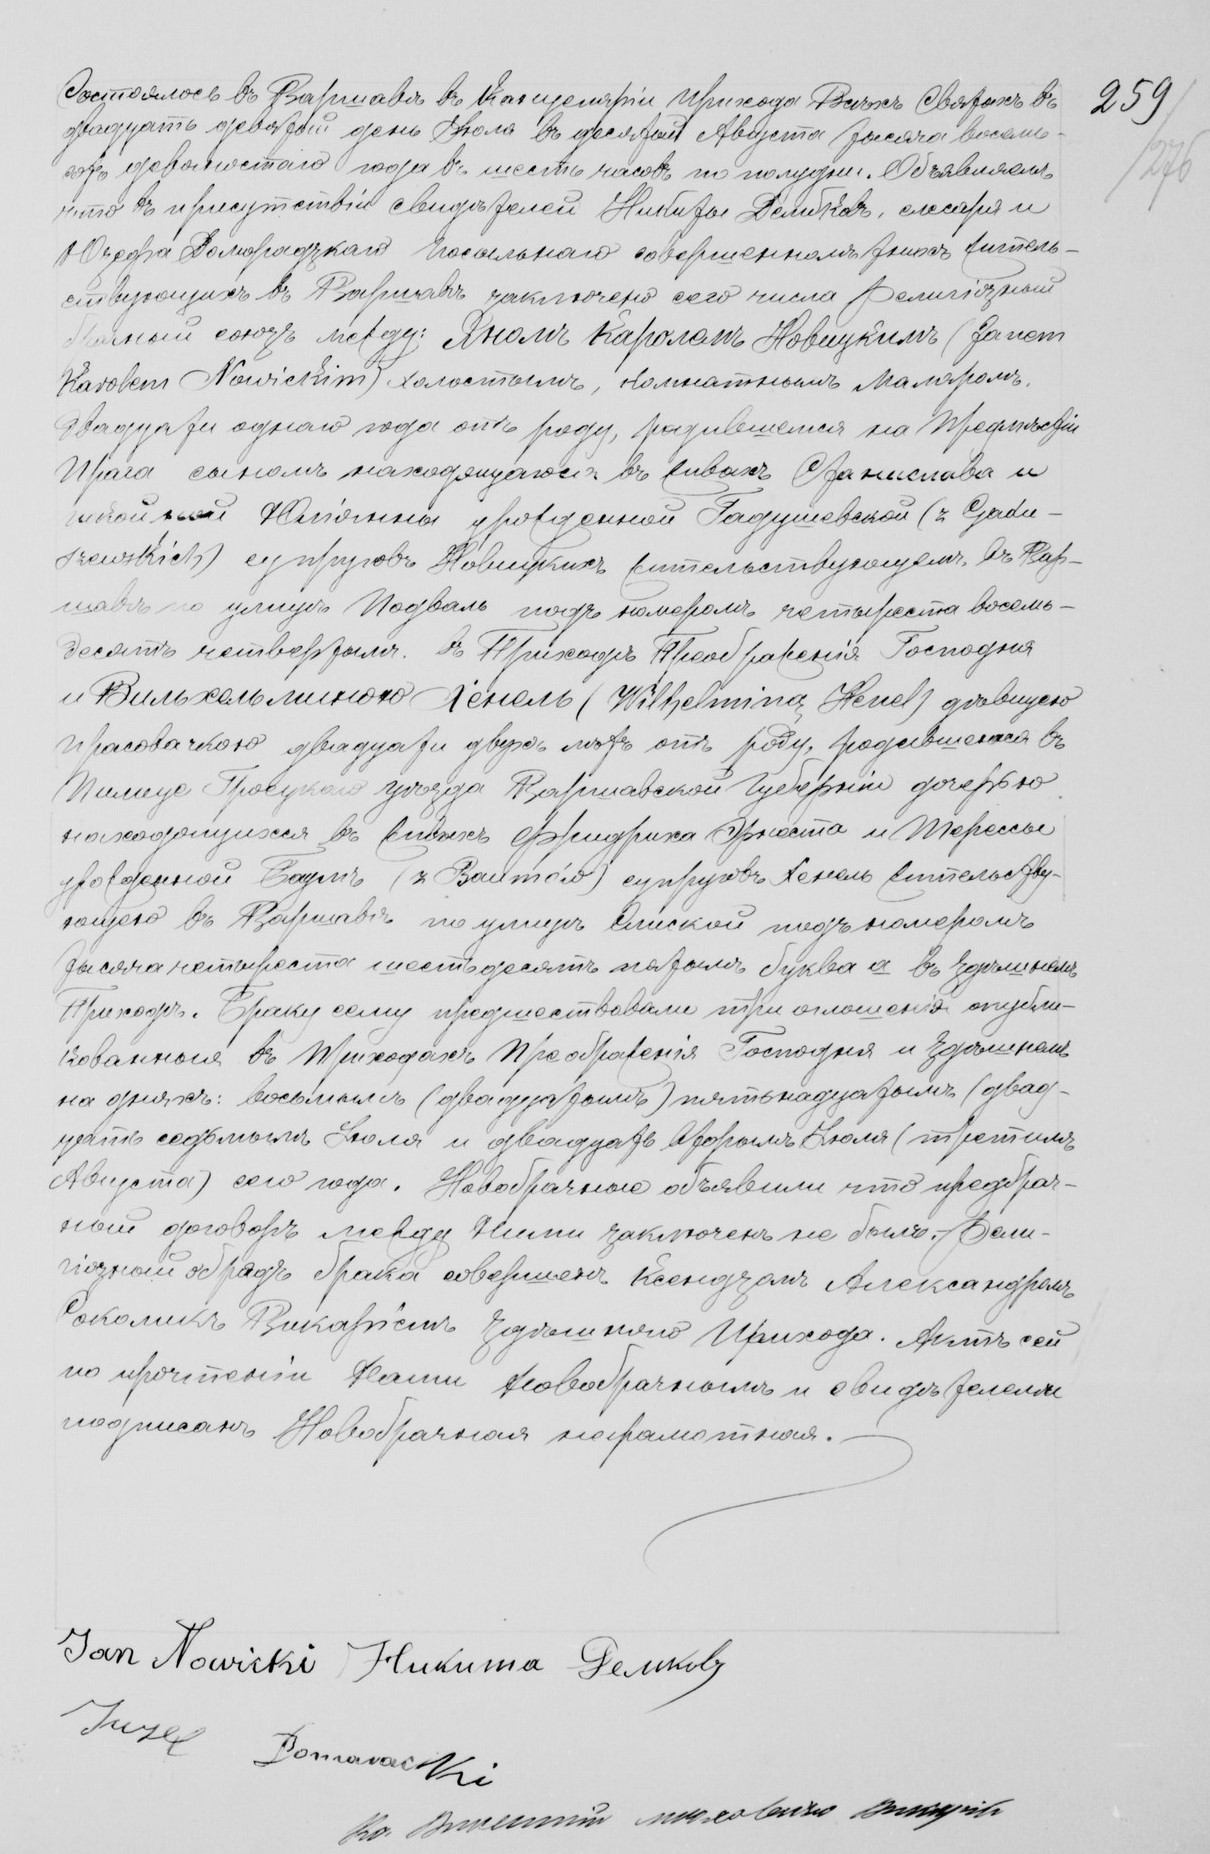 259
/276
Состоялось въ Варшавѣ въ Канцеляріи Прихода Всѣхъ Святыхъ въ
двадцать девятый день Іюля въ десятый Августа тысяча восемь-
сотъ девяностаго года въ шесть часовъ по полудни. Объявляемъ
что въ присутствіи свидѣтелей Никиты Демкова, слесаря и
Юзефа Домарадзкаго посыльнаго совершеннолѣтнихъ житель-
ствующихъ въ Варшавѣ заключено сего числа религіозный
брачный союзъ между: Яномъ Каролемъ Новицкимъ (Janem
Karolem Nowickim) холостымъ, комнатнымъ маляромъ,
двадцати одного года отъ роду, родившемся на Предмѣстіи
Прага сыномъ находящагося въ живыхъ Станислава и
покойной Юліянны урожденной Гадушевской (z Gadu-
szewskich) супруговъ Новицкихъ жительствующемъ въ Вар-
шавѣ по улицѣ Подваль подъ номеромъ четыреста восемь-
десятъ четвертымъ въ Приходѣ Преображенія Господня
и Вильхельминою Хенель (Wilhelminą Henel) дѣвицею
прасовачкою двадцати двухъ лѣтъ отъ роду, родившеюся въ
Пилице Гроецкаго уѣзда Варшавской Губерніи дочерью
находящихся въ живыхъ Фридриха Эрнеста и Терессы
урожденной Баумъ (z Baumów) супруговъ Хенель жительству-
ющею въ Варшавѣ по улицѣ Слиской подъ номеромъ
тысяча четыреста шестьдесятъ пятымъ буква а въ здѣшнемъ
Приходѣ. Браку сему предшествовали три оглашенія опубли-
кованныя въ Приходахъ Преображенія Господня и здѣшнемъ
на дняхъ: восьмымъ (двадцатымъ) пятьнадцатымъ (двад-
цать седьмымъ Іюля и двадцать вторымъ Іюля (третимъ
Августа) сего года. Новобрачные объявили что предбрач-
ный договоръ между ними заключенъ не былъ. Рели-
гіозный обрядъ брака совершенъ Ксендзомъ Александромъ
Соколикъ Викаріемъ здѣшняго Прихода. Актъ сей
по прочтеніи Нами Новобрачнымъ и свидѣтелями
подписанъ Новобрачная неграмотная.
Jan Nowicki Никита Демковъ
Juzef Domaracki
Кс.